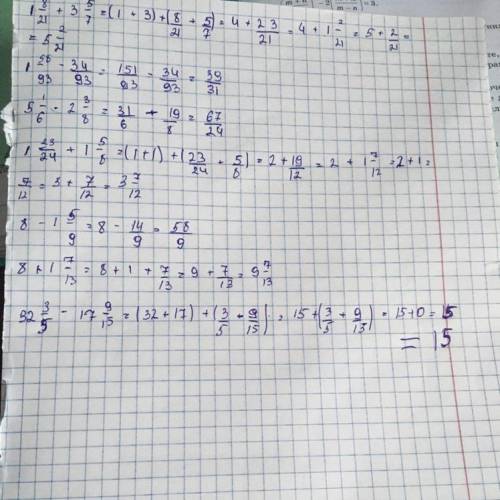 1 8/21 + 3 5/7 = (1 + 3) + (8/21 + 5/7) = 4 + 23/21 = 4 + 1 2/21 = 5 + 2/21 =
= 5 2/21
1 58/93 - 34/93 = 151/93 - 34/93 = 39/31
5 1/6 - 2 3/8 = 31/6 + 19/8 = 67/24
1 23/24 + 1 5/8 = (1+1) + (23/24 + 5/8) = 2 + 19/12 = 2 + 1 7/12 = 2 + 1 =
7/12 = 3 + 7/12 = 3 7/12
8 - 1 5/9 = 8 - 14/9 = 58/9
8 + 1 7/13 = 8 + 1 + 7/13 = 9 + 7/13 = 9 7/13
32 3/5 - 17 9/15 = (32 + 17) + (3/5 + 9/15) = 15 + (3/5 + 9/15) = 15 + 0 = 5
= 15